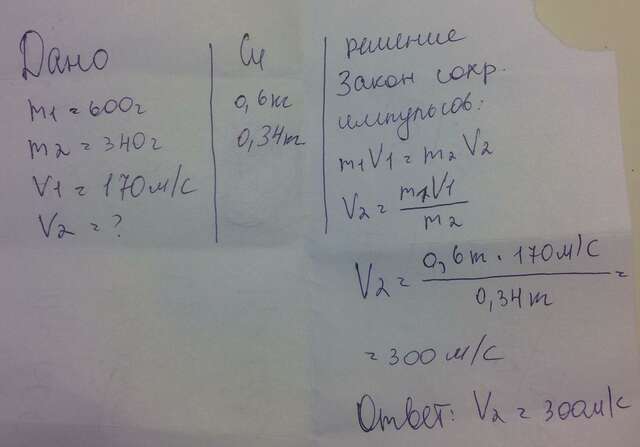 Дано
m1 = 600г
m2 = 340г
V1 = 170м/с
V2 = ?
Си
0,6кг
0,34кг
решение
Закон сохр.
импульсов:
m1V1 = m2 V2
V2 = m1V1 / m2
V2 = 0,6кг · 170м/с / 0,34кг =
= 300 м/с
Ответ: V2 = 300м/с